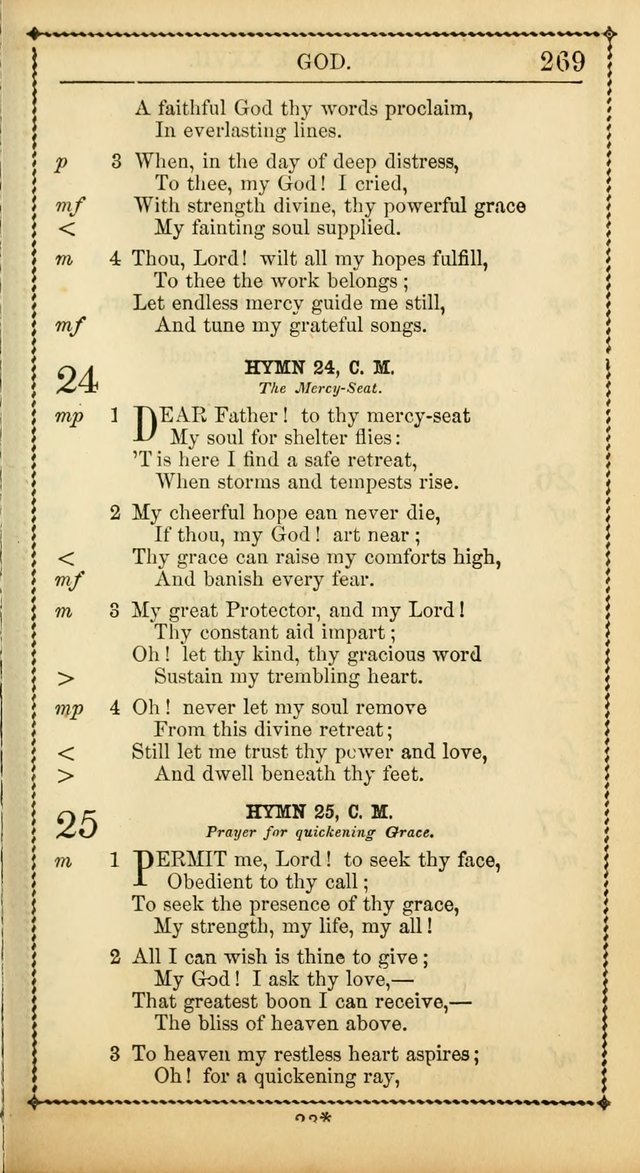 GOD. 269
A faithful God thy words proclaim,
In everlasting lines.
p 3 When, in the day of deep distress,
To thee, my God! I cried,
mf With strength divine, thy powerful grace
< My fainting soul supplied.
m 4 Thou, Lord! wilt all my hopes fulfill,
To thee the work belongs;
Let endless mercy guide me still,
mf And tune my grateful songs.
24 HYMN 24, C. M.
The Mercy-Seat.
mp 1 DEAR Father! to thy mercy-seat
My soul for shelter flies:
'T is here I find a safe retreat,
When storms and tempests rise.
2 My cheerful hope ean never die,
If thou, my God! art near;
< Thy grace can raise my comforts high,
mf And banish every fear.
m 3 My great Protector, and my Lord!
Thy constant aid impart;
Oh! let thy kind, thy gracious word
> Sustain my trembling heart.
mp 4 Oh! never let my soul remove
From this divine retreat;
< Still let me trust thy power and love,
> And dwell beneath thy feet.
25 HYMN 25, C. M.
Prayer for quickening Grace.
m 1 PERMIT me, Lord! to seek thy face,
Obedient to thy call;
To seek the presence of thy grace,
My strength, my life, my all!
2 All I can wish is thine to give;
My God! I ask thy love,—
That greatest boon I can receive,—
The bliss of heaven above.
3 To heaven my restless heart aspires;
Oh! for a quickening ray,